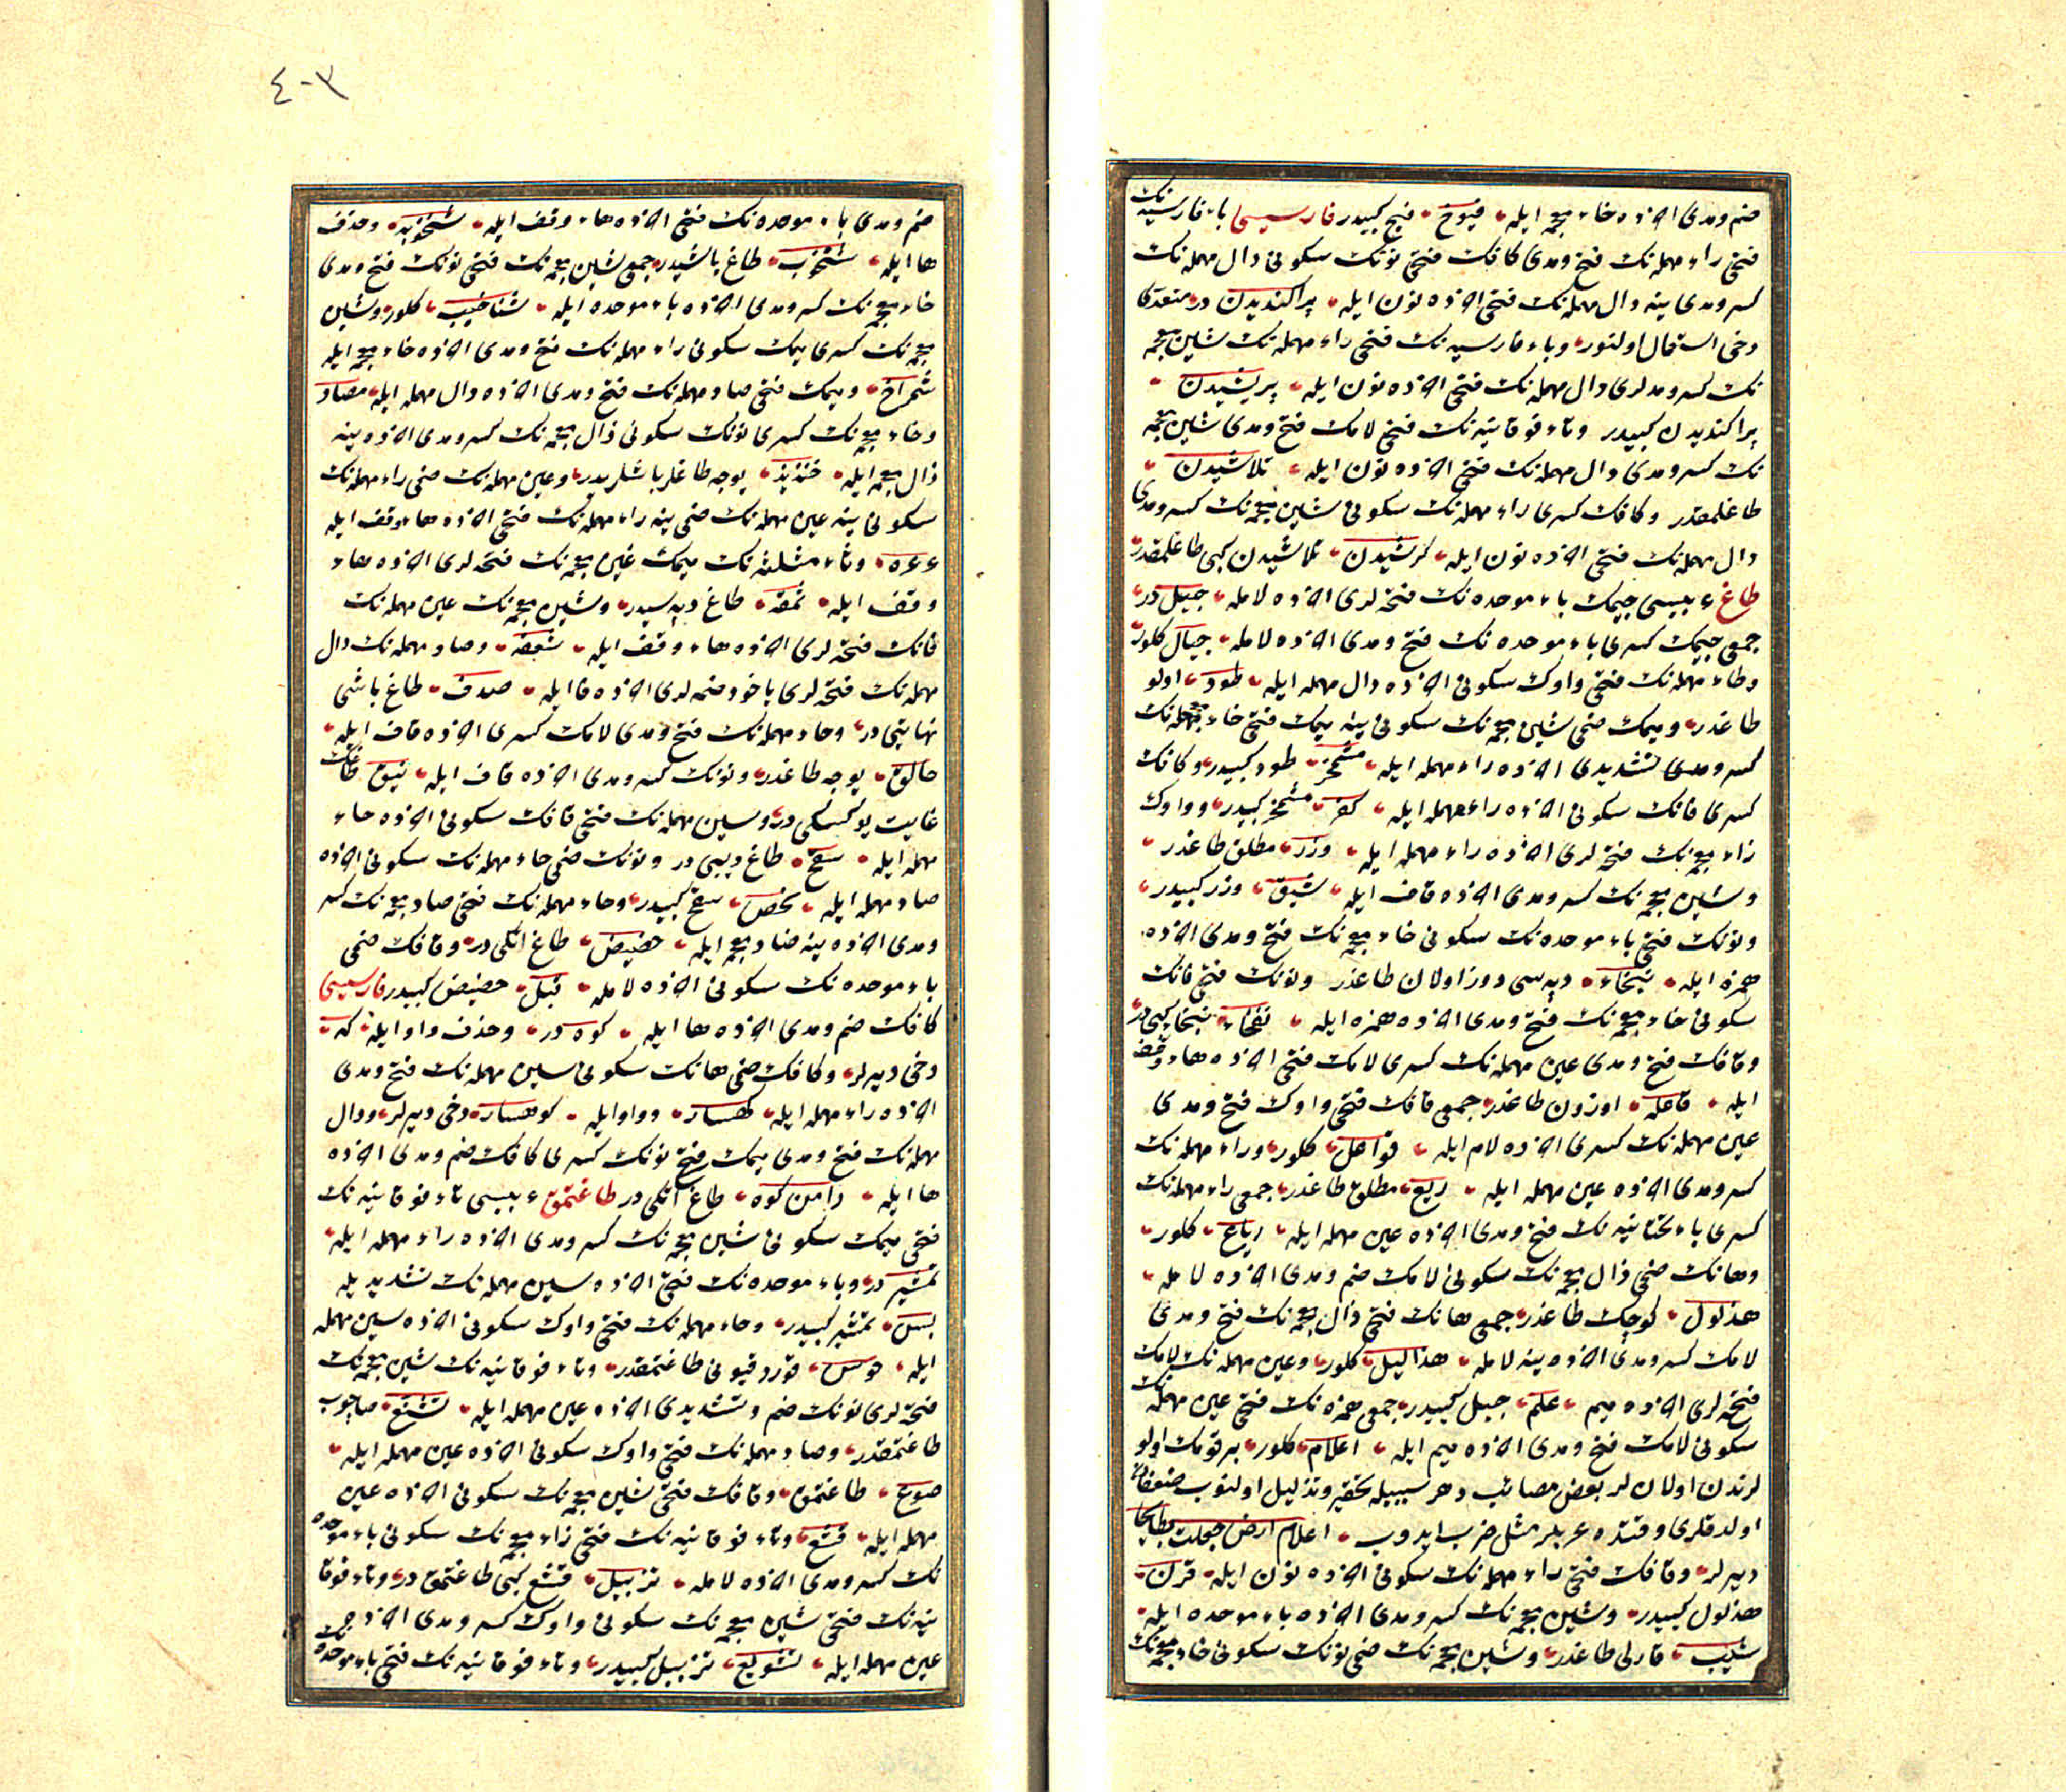 ضم و مدی اخرده خاء معجمه ایله فیوخ فیج کبیدر فارسیسی باء فارسیه نک
فتحی راء مهمله نک فتح و مدی کافک فتحی نونک سکونی دال مهمله نک
کسر و مدی ینه دال مهمله نک فتحی اخرده نون ایله پراکندیدن در متعدی
دخی استعمال اولنور و باء فارسیه نک فتحی راء مهمله نک شین معجمه
نک کسر و مدلری دال مهمله نک فتحی اخرده نون ایله پریشیدن
پراکندیدن کبیدر و تاء فوقانیه نک فتحی لامک فتح و مدی شین معجمه
نک کسر و مدی دال مهمله نک فتحی اخرده نون ایله تلاشیدن
طاغلمقدر و کافک کسری راء مهمله نک سکونی شین معجمه نک کسر و مدی
دال مهمله نک فتحی اخرده نون ایله کرشیدن تلاشیدن کبی طاغلمقدر
طاغ عربیسی جیمک باء موحده نک فتحه لری اخرده لامله جبل در
جمعی جیمک کسری باء موحده نک فتح و مدی اخرده لامله جبال کلور
و طاء مهمله نک فتحی واوک سکونی اخرده دال مهمله ایله طود اولو
طاغدر و میمک ضمی شین معجمه نک سکونی ینه میمک فتحی خاء معجمه نک
کسر و مدی تشدیدی اخرده راء مهمله ایله مشمخر طود کبیدر و کافک
کسری فانک سکونی اخرده راء مهمله ایله کفر مشمخر کبیدر و واوک
زاء معجمه نک فتحه لری اخرده راء مهمله ایله وزر مطلق طاغدر
و شین معجمه نک کسر و مدی اخرده قاف ایله شیق وزر کبیدر
و نونک فتحی باء موحده نک سکونی خاء معجمه نک فتح و مدی اخرده
همزه ایله نبخاء دپه سی دوز اولان طاغدر و نونک فتحی فانک
سکونی خاء معجمه نک فتح و مدی اخرده همزه ایله نفخاء نبخاء کبی در
و قافک فتح و مدی عین مهمله نک کسری لامک فتحی اخرده هاء وقف
ایله قاعله اوزون طاغدر جمعی قافک فتحی واوک فتح و مدی
عین مهمله نک کسری اخرده لام ایله قواعل کلور و راء مهمله نک
کسر و مدی اخرده عین مهمله ایله ریع مطلق طاغدر جمعی راء مهمله نک
کسری یاء تحتانیه نک فتح و مدی اخرده عین مهمله ایله ریاع کلور
و هانک ضمی ذال معجمه نک سکونی لامک ضم و مدی اخرده لامله
هذلول کوچک طاغدر جمعی هانک فتحی ذال معجمه نک فتح و مدی
لامک کسر و مدی اخرده ینه لامله هذالیل کلور و عین مهمله نک لامک
فتحه لری اخرده میم علم جبل کبیدر جمعی همزه نک فتحی عین مهمله نک
سکونی لامک فتح و مدی اخرده میم ایله اعلام کلور بر قومک اولو
لرندن اولان لر بعض مصائب دهر سببیله تحقیر و تذلیل اولنوب
اولدقلری وقتده عربلر مثل ضرب ایدوب اعلام ارض جعلت بطایحا
دیرلر و قافک فتحی راء مهمله نک سکونی اخرده نون ایله قرن
هذلول کبیدر و شین معجمه نک کسر و مدی اخرده باء موحده ایله
شیب قارلی طاغدر و شین معجمه نک ضمی نونک سکونی خاء معجمه نک
٤٠٣
ضم و مدی باء موحده نک فتحی اخرده هاء وقف ایله شنخوبه و حذف
ها ایله شنخوب طاغ باشیدر جمعی شین معجمه نک فتحی نونک فتح و مدی
خاء معجمه نک کسر و مدی اخرده باء موحده ایله شناخیب کلور و شین
معجمه نک کسری میمک سکونی راء مهمله نک فتح و مدی اخرده خاء معجمه ایله
شمراخ و میمک فتحی صاد مهمله نک فتح و مدی اخرده دال مهمله ایله مصاد
و خاء معجمه نک کسری نونک سکونی ذال معجمه نک کسر و مدی اخرده ینه
ذال معجمه ایله خنذیذ یوجه طاغلر باشلریدر و عین مهمله نک ضمی راء مهمله نک
سکونی ینه عین مهمله نک ضمی ینه راء مهمله نک فتحی اخرده هاء وقف ایله
عرعره و ثاء مثلثه نک میمک غین معجمه نک فتحه لری اخرده هاء
وقف ایله ثمغه طاغ دپه سیدر و شین معجمه نک عین مهمله نک
فانک فتحه لری اخرده هاء وقف ایله شعفه و صاد مهمله نک دال
مهمله نک فتحه لری یاخود ضمه لری اخرده فا ایله صدف طاغ باشی
نهایتی در و حاء مهمله نک فتح و مدی لامک کسری اخرده قاف ایله
حالق یوجه طاغدر و نونک کسر و مدی اخرده قاف ایله نیق طاغک
غایت یوکسکی در و سین مهمله نک فتحی فانک سکونی اخرده حاء
مهمله ایله سفح طاغ دیبی در و نونک ضمی حاء مهمله نک سکونی اخرده
صاد مهمله ایله نحص سفح کبیدر و حاء مهمله نک فتحی ضاد معجمه نک کسر
و مدی اخرده ینه ضاد معجمه ایله حضیض طاغ اتکی در و قافک ضمی
باء موحده نک سکونی اخرده لامله قبل حضیض کبیدر فارسیسی
کافک ضم و مدی اخرده ها ایله کوه در و حذف واو ایله که
دخی دیرلر و کافک ضمی هانک سکونی سین مهمله نک فتح و مدی
اخرده راء مهمله ایله کهسار و واو ایله کوهسار دخی دیرلر و دال
مهمله نک فتح و مدی میمک فتحی نونک کسری کافک ضم و مدی اخرده
ها ایله دامن کوه طاغ اتکی در طاغتمق عربیسی تاء فوقانیه نک
فتحی میمک سکونی شین معجمه نک کسر و مدی اخرده راء مهمله ایله
تمشیر در و باء موحده نک فتحی اخرده سین مهمله نک تشدیدیله
بس تمشیر کبیدر و حاء مهمله نک فتحی واوک سکونی اخرده سین مهمله
ایله حوس قورد قیونی طاغتمقدر و تاء فوقانیه نک شین معجمه نک
فتحه لری نونک ضم و تشدیدی اخرده عین مهمله ایله تشنع
طاغتمقدر و صاد مهمله نک فتحی واوک سکونی اخرده عین مهمله ایله
صوع طاغتمق و قافک فتحی شین معجمه نک سکونی اخرده عین
مهمله ایله قشع و تاء فوقانیه نک فتحی زاء معجمه نک سکونی باء موحده
نک کسر و مدی اخرده لامله تزبیل قشع کبی طاغتمق در و تاء فوقا
نیه نک فتحی شین معجمه نک سکونی واوک کسر و مدی اخرده
عین مهمله ایله تشویع تزبیل کبیدر و تاء فوقانیه نک فتحی باء موحده